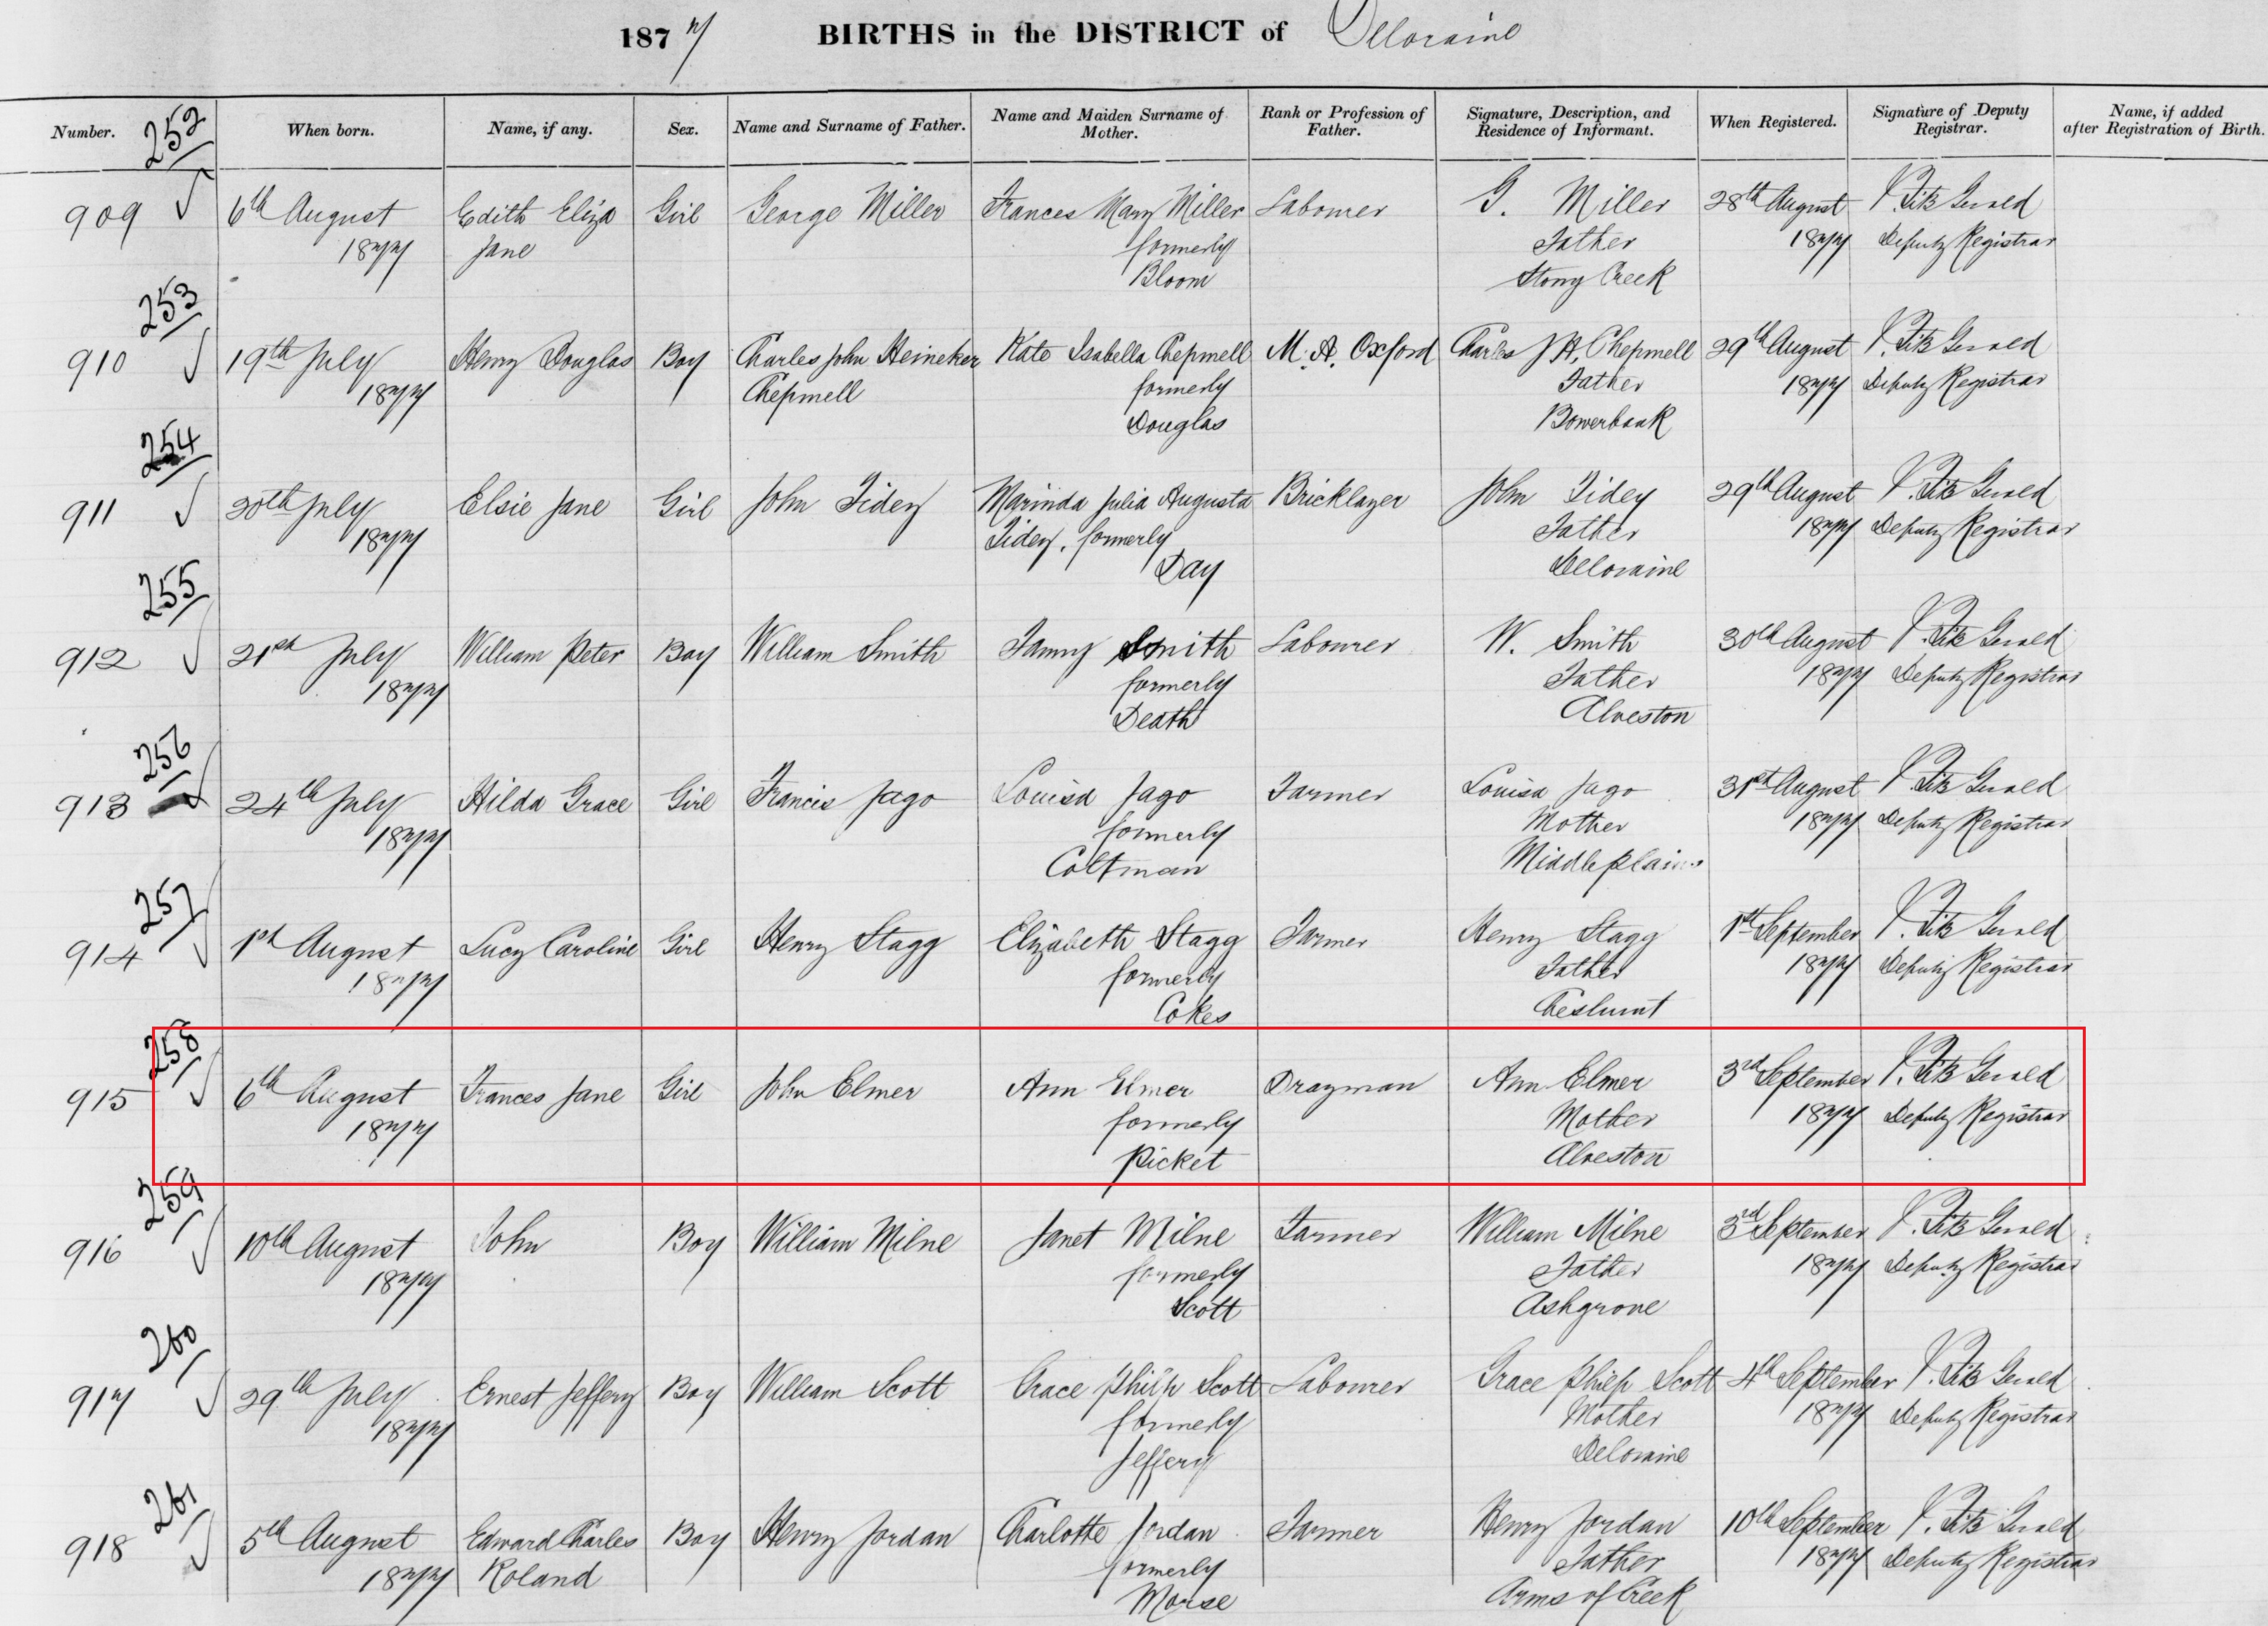 1877 BIRTHS in the DISTRICT of Deloraine
Number. When born. Name, if any. Sex. Name and Surname of Father. Name and Maiden Surname of Mother. Rank or Profession of Father. Signature, Description, and Residence of Informant. When Registered. Signature of Deputy Registrar. Name, if added after Registration of Birth.
252
909 6th August Edith Eliza Girl George Miller Frances Mary Miller Labourer G. Miller 28th August Fitz Gerald
1877 Jane formerly Father 1877 Deputy Registrar
Bloom Stony Creek
253
910 19th July Henry Douglas Boy Charles John Heineker Kate Isabella Chepmell M.A. Oxford Charles J H. Chepmell 29th August Fitz Gerald
1877 Chepmell formerly Father 1877 Deputy Registrar
Douglas Bowerbank
254
911 30th July Elsie Jane Girl John Tidey Marinda Julia Augusta Bricklayer John Tidey 29th August Fitz Gerald
1877 Tidey, formerly Father 1877 Deputy Registrar
Day Deloraine
255
912 21st July William Peter Boy William Smith Fanny Smith Labourer W. Smith 30th August Fitz Gerald
1877 formerly Father 1877 Deputy Registrar
Death Alveston
256
913 24th July Hilda Grace Girl Francis Jago Louisa Jago Farmer Louisa Jago 31st August Fitz Gerald
1877 formerly Mother 1877 Deputy Registrar
Coltman Middleplains
257
914 1st August Lucy Caroline Girl Henry Stagg Elizabeth Stagg Farmer Henry Stagg 1st September Fitz Gerald
1877 formerly Father 1877 Deputy Registrar
Cokes Cheshunt
258
915 6th August Frances Jane Girl John Elmer Ann Elmer Drayman Ann Elmer 3rd September Fitz Gerald
1877 formerly Mother 1877 Deputy Registrar
Picket Alveston
259
916 10th August John Boy William Milne Janet Milne Farmer William Milne 3rd September Fitz Gerald
1877 formerly Father 1877 Deputy Registrar
Scott Ashgrove
260
917 29th July Ernest Jeffery Boy William Scott Grace Philp Scott Labourer Grace Philp Scott 4th September Fitz Gerald
1877 formerly Mother 1877 Deputy Registrar
Jeffery Deloraine
261
918 5th August Edward Charles Boy Henry Jordan Charlotte Jordan Farmer Henry Jordan 10th September Fitz Gerald
1877 Roland formerly Father 1877 Deputy Registrar
Morse Arms of Creek